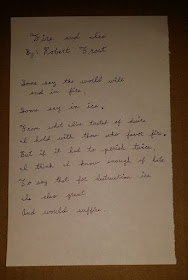 Fire and Ice
By: Robert Frost
Some say the world will
end in fire,
Some say in ice.
From what I've tasted of desire
I hold with those who favor fire.
But if it had to perish twice,
I think I know enough of hate
To say that for destruction ice
Is also great
And would suffice.